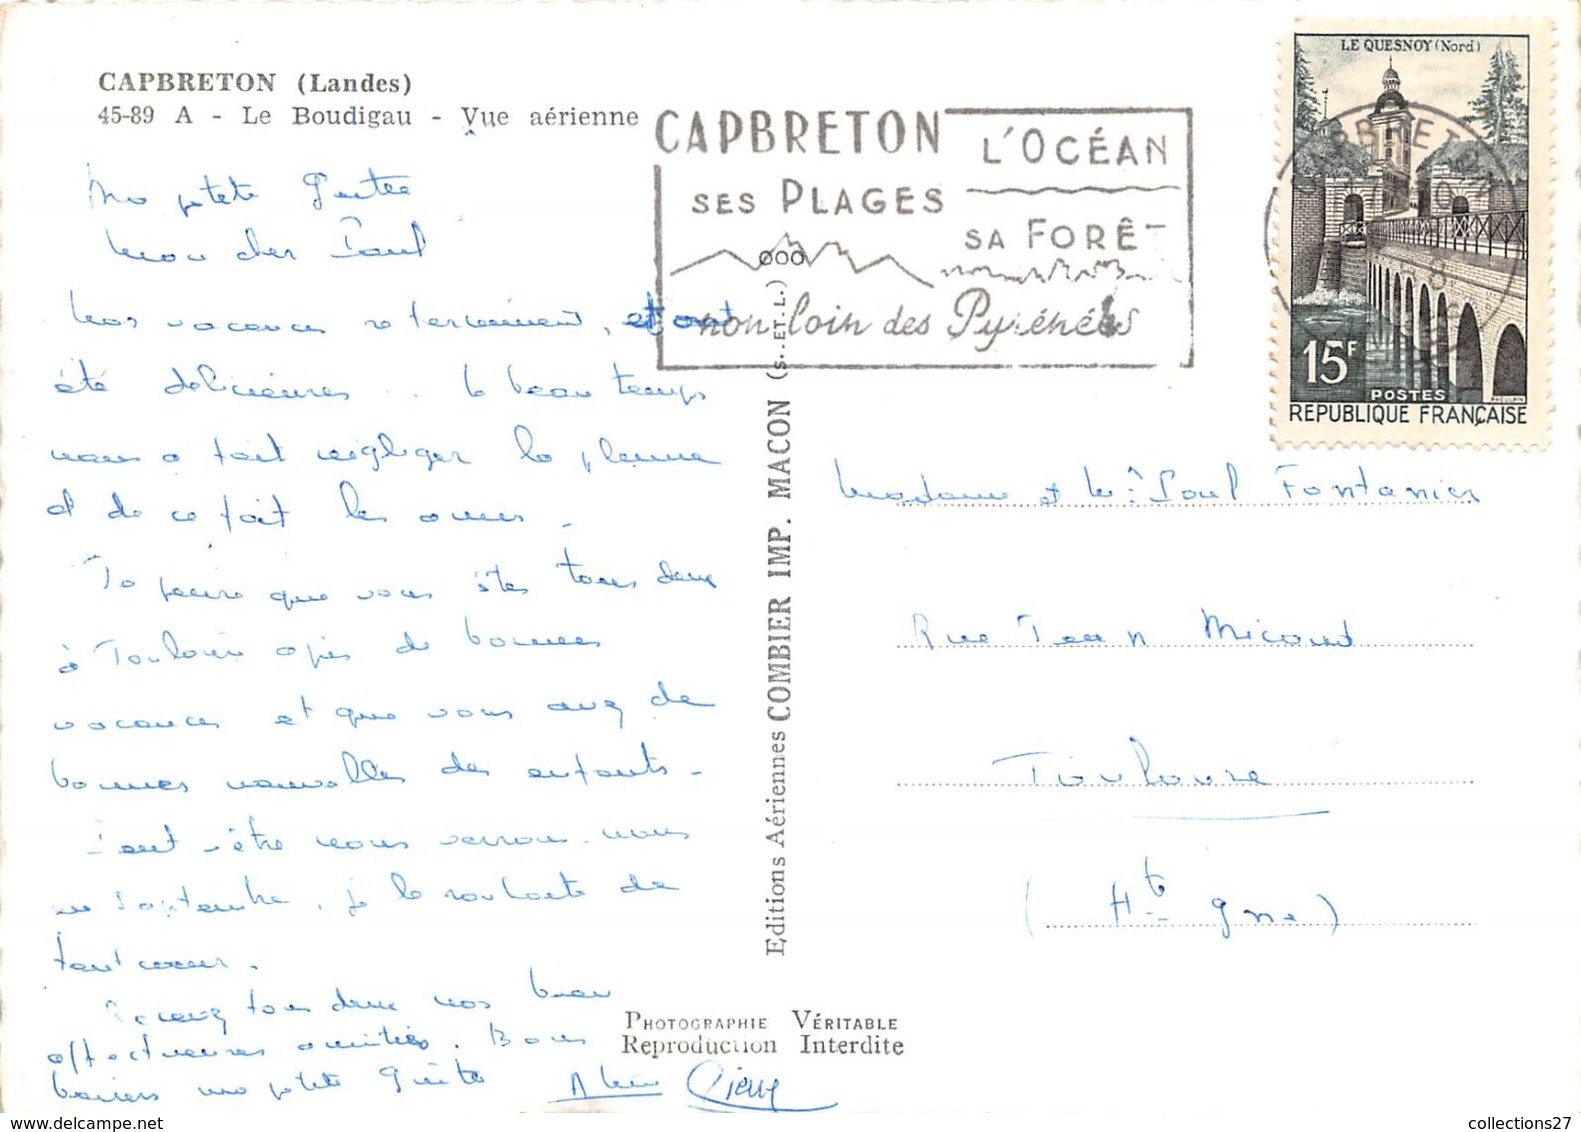 CAPBRETON (Landes)
45-89 A - Le Boudigau - Vue aérienne
Ma ptete Guitee
Mon cher Paul
Nos vacances se terminent, et ont
été délicieuses. Le beau temps
nous a fait négliger la plume
et de ce fait les amis.
Je pense que vous êtes tous deux
à Toulouse après de bonnes
vacances et que vous avez de
bonnes nouvelles des enfants.
Peut-être nous verrons-nous
en Septembre, je le souhaite de
tout coeur.
Recevez tous deux nos bien
affectueuses amitiés. Bons
baisers ma ptete Guite
CAPBRETON
SES PLAGES
L'OCÉAN
SA FORÊT
non loin des Pyrénées
LE QUESNOY (Nord)
CAPBRETON
15F
POSTES
REPUBLIQUE FRANÇAISE
Madame et Mr Paul Fontanier
Rue Jean Micoud
Toulouse
(Hte Gne)
Editions Aériennes COMBIER IMP. MACON (S.-ET-L.)
PHOTOGRAPHIE VÉRITABLE
Reproduction Interdite
collections27